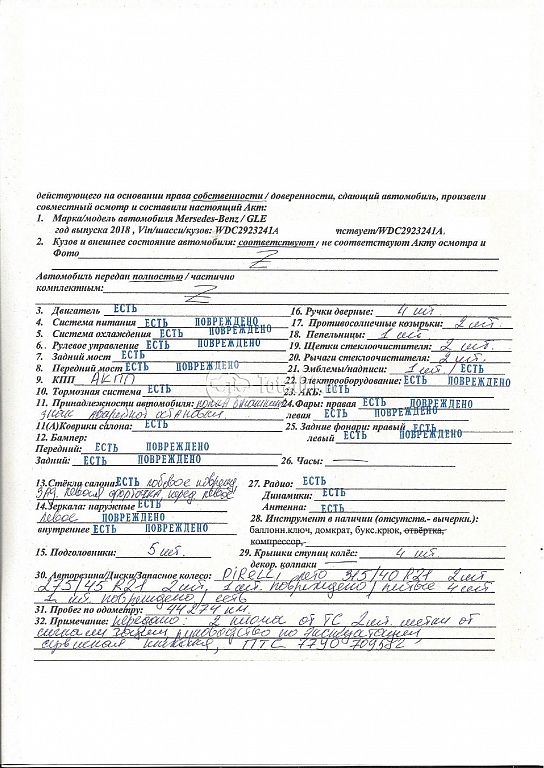 действующего на основании права собственности / доверенности, сдающий автомобиль, произвели
совместный осмотр и составили настоящий Акт:
1. Марка/модель автомобиля Mersedes-Benz / GLE
год выпуска 2018 , Vin/шасси/кузов: WDC2923241A тствует/WDC2923241A.
2. Кузов и внешнее состояние автомобиля: соответствуют / не соответствуют Акту осмотра и
Фото Z
Автомобиль передан полностью / частично
комплектным: Z
3. Двигатель ЕСТЬ
4. Система питания ЕСТЬ ПОВРЕЖДЕНО
5. Система охлаждения ЕСТЬ ПОВРЕЖДЕНО
6. Рулевое управление ЕСТЬ ПОВРЕЖДЕНО
7. Задний мост ЕСТЬ
8. Передний мост ЕСТЬ ПОВРЕЖДЕНО
9. КПП АКПП
10. Тормозная система ЕСТЬ
11. Принадлежности автомобиля:
знак аварийной остановки
11(А)Коврики салона: ЕСТЬ
12. Бампер:
Передний: ЕСТЬ ПОВРЕЖДЕНО
Задний: ЕСТЬ ПОВРЕЖДЕНО
13.Стёкла салона: ЕСТЬ лобовое
зад. левая форточка, перед. левое
14.Зеркала: наружные ЕСТЬ
левое ПОВРЕЖДЕНО
внутреннее ЕСТЬ ПОВРЕЖДЕНО
15. Подголовники: 5 шт.
16. Ручки дверные: 4 шт
17. Противосолнечные козырьки: 2 шт.
18. Пепельницы: 1 шт
19. Щетки стеклоочистителя: 2 шт.
20. Рычаги стеклоочистителя: 2 шт.
21. Эмблемы/надписи: 1 шт / ЕСТЬ
22. Электрооборудование: ЕСТЬ ПОВРЕЖДЕНО
23. АКБ: ЕСТЬ
24.Фары: правая ЕСТЬ ПОВРЕЖДЕНО
левая ЕСТЬ ПОВРЕЖДЕНО
25. Задние фонари: правый ЕСТЬ
левый ЕСТЬ ПОВРЕЖДЕНО
26. Часы:
27. Радио: ЕСТЬ
Динамики: ЕСТЬ
Антенна: ЕСТЬ
28. Инструмент в наличии (отсутств.- вычерки.):
баллонн.ключ, домкрат, букс.крюк, отвёртка,
компрессор,
29. Крышки ступиц колёс: 4 шт.
декор. колпаки
30. Авторезина/Диски/Запасное колесо: PIRELLI, лето 315/40 R21 2шт
275/45 R21 2 шт, 1 шт. повреждено, литые 4 шт
1 шт повреждено / есть
31. Пробег по одометру: 44274 км.
32. Примечание: передано: 2 ключа от ТС 2шт. метки от
сигнализации, руководство по эксплуатации,
сервисная книжка, ПТС 77УО 709582